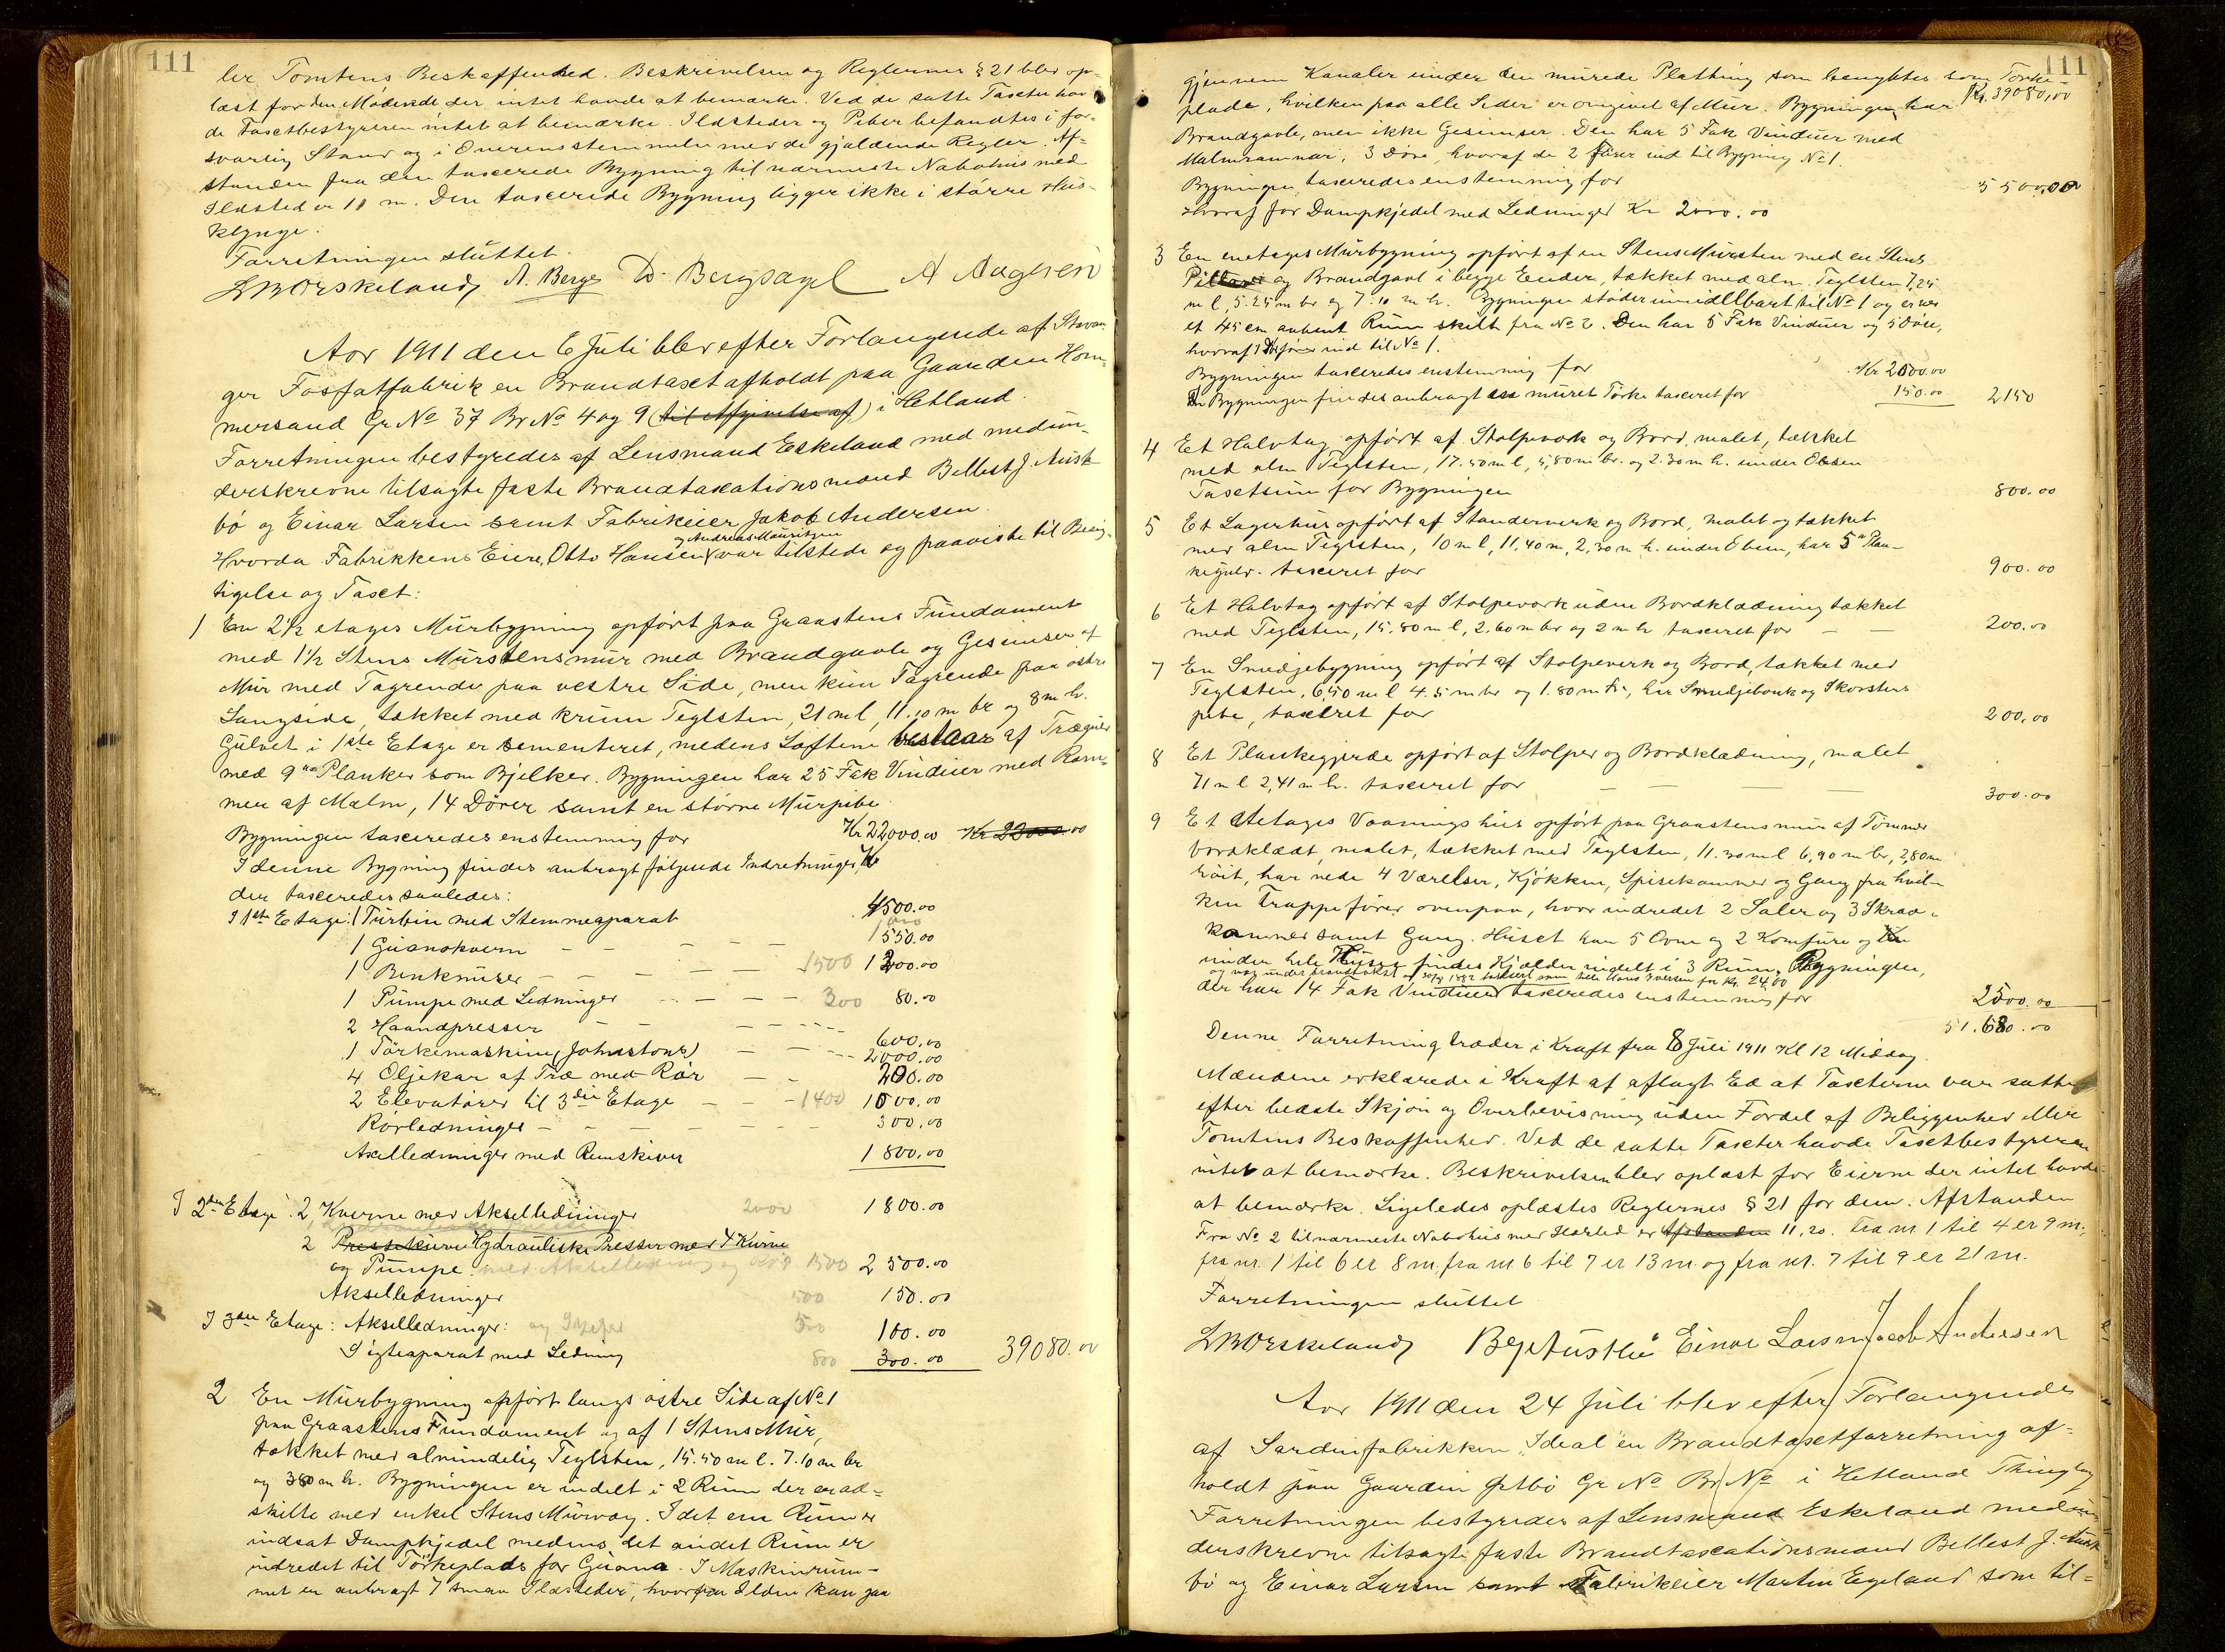 111
ler Tomtens Beskaffenhed. Beskrivelsen og Reglernes § 21 blev op-
læst for den Mödende der intet havde at bemærke. Ved de satte Taxter hav
de Taxtbestyreren intet at bemærke. Ildsteder og Piber befandtes i for-
svarlig Stand og i Overensstemmelse med de gjældende Regler. Af-
standen fra den taxerede Bygning til nærmeste Nabohus med
Ildsted er 11 m. Den taxerede Bygning ligger ikke i större Hus-
klynge.
Forretningen sluttet.
A. Berge D. Bergsagel A Aagesen
Aar 1911 den 6 Juli blev efter Forlangende af Stavan
ger Fosfatfabrik en Brandtaxt afholdt paa Gaarden Hom-
mersand Gr No 37 Br No 4 og 9 (til Afgivelse af) i Hetland.
Forretningen bestyredes af Lensmand Eskeland med medun-
derskrevne tilsagte faste Brandtaxationsmænd Bellest J. Aust-
bö og Einar Larsen samt Fabrikeier Jakob Andersen.
og Andreas Mauritzen
Hvorda Fabrikkens Eiere, Otto Hansen var tilstede og paaviste til Besig-
tigelse og Taxt:
1 En 2½ etages Murbygning opfört paa Graastens Fundament
med 1½ Stens Murstensmur med Brandgavle og Gesimser af
Mur med Tagrende paa vestre Side, men kun Tagrende paa östre
Langside, tækket med krum Teglsten, 21 m l, 11.10 m br og 8 m h.
Gulvet i 1ste Etage er sementeret, medens Loftene bestaar af Trægulv
med 9" Planker som Bjelker. Bygningen har 25 Fak Vinduer med Ram-
mer af Malm, 14 Dörer samt en större Murpibe.
Bygningen taxeredes enstemmig for Kr 22000.00 Kr 22000.00
I denne Bygning findes anbragt fölgende Indretninger,
der taxeredes saaledes:
I 1ste Etage: 1 Turbin med Stemmeapparat 4500.00
1 Guanokvern - - - - - 550.00
1 Benknuser - - - - - 1500 1200.00
1 Pumpe med Ledninger - - - 300 80.00
2 Haandpresser - - - - 600.00
1 Törkemaskine (Johnstons) - - - 2000.00
4 Oljekar af Træ med Rör - - 200.00
2 Elevatorer til 3die Etage - - - 1400 1000.00
Rörledninger - - - - - - 300.00
Axelledninger med Remskiver 1800.00
I 2den Etage: 2 Kverne med Akselledninger 2000 1800.00
2 Pressekurve Hydrauliske Presser med 4 Kurve
og Pumpe. med Akselledning og 1500 2500.00
Akselledninger 500 150.00
I 3die Etage: Akselledninger: 500 100.00
Sigteaparat med Ledning 800 300.00 39080.00
2 En Murbygning opfört langs östre Side af No 1
paa Graastens Fundament og af 1 Stens Mur,
tækket med almindelig Teglsten, 15.50 m l. 7.10 m br
og 380 m h. Bygningen er indelt i 2 Rum der er ad-
skilte med enkel Stens Murvæg. I det ene Rum er
indsat Dampkjedel medens det andet Rum er
indredet til Törkeplads for Guano. I Maskinrum-
met er anbragt 7 smaa Ildsteder, hvorfra Ilden kan gaa
111
gjennem Kanaler under den murede Platting som benyttes som Törke-
plads, hvilken paa alle Sider er omgivet af Mur. Bygningen har Kr. 39080,00
Brandgavle, men ikke Gesimser. Den har 5 Fak Vinduer med
Malmrammer, 3 Döre, hvoraf de 2 förer ind til Bygning No 1.
Bygningen taxeredes enstemmig for 5500.00
Hvoraf for Dampkjedel med Ledninger Kr 2000.00
3 En enetages Murbygning opfört af en Stens Mursten med en Stens
og Brandgavl i begge Ender, tækket med alm. Teglsten 7,25
m l, 5.25 m br og 7.10 m h. Bygningen stöder umidlelbart til No 1 og er ved
et 45 cm aabent Rum skilt fra No 2. Den har 5 Fak Vinduer og 5 Döre,
hvoraf 1 Dör förer ind til No 1.
Bygningen taxeredes enstemmig for Kr 2000.00
I Bygningen findes anbragt en muret Törke taxeret for 150.00 2150
4 Et Halvtag opfört af Stolpeverk og Bord, malet, tækket
med alm Teglsten, 17.50 m l, 5,80 m br. og 2.30 m h. under Obsen
Taxtsum for Bygningen 800.00
5 Et Lagerhus opfört af Standerverk og Bord, malet og tækket
med alm Teglsten, 10 m l, 11,40 m, 2,30 m h. under Obsen, har 5" Plan-
kegulv. taxeret for 900.00
6 Et Halvtag opfört af Stolpeverk uden Bordklædning tækket
med Teglsten, 15.80 m l, 2.60 m br og 2 m h taxeret for - - 200.00
7 En Smedjebygning opfört af Stolpeverk og Bord, tækket med
Teglsten, 6,50 m l 4.5 m br og 1.80 m h, har Smedjebænk og Skorstens
pibe, taxeret for 200.00
8 Et Plankegjerde opfört af Stolper og Bordklædning, malet
71 m l 2,41 m h. taxeret for - - - 300.00
9 Et 1 etages Vaaningshus opfört paa Graastensmur af Tömmer
bordklædt, malet, tækket med Teglsten, 11.30 m l 6,90 m br, 2,80 m
höit, har nede 4 Værelser, Kjökken, Spisekammer og Gang fra hvil-
ken Trappe förer ovenpaa, hvor indredet 2 Saler og 3 Skraa-
kammer samt Gang. Huset har 5 Ovne og 2 Komfure og
under hele Huset findes Kjælder indelt i 3 Rum. Bygningen,
og var under brandtakst 1882 taksert som til Hans Iversen for Kr. 2400
der har 14 Fak Vinduer taxeredes enstemmig for 2500.00
51.680.00
Denne Forretning træder i Kraft fra 8 Juli 1911 Kl 12 Middag.
Mændene erklærede i Kraft af aflagt Ed at Taxterne var satte
efter bedste Skjön og Overbevisning uden Fordel af Beliggenhed eller
Tomtens Beskaffenhed. Ved de satte Taxter havde Taxtbestyreren
intet at bemærke. Beskrivelsen blev oplæst for Eierne der intet havde
at bemærke. Ligeledes oplæstes Reglernes § 21 for dem. Afstanden
Fra No. 2 til nærmeste Nabohus med Ildsted er Afstanden 11,20. Fra nr. 1 til 4 er 9 m,
fra nr. 1 til 6 er 8 m, fra nr 6 til 7 er 13 m. og fra nr. 7 til 9 er 21 m.
Forretningen sluttet
Einar Larsen Jacob Andersen
Aar 1911 den 24 Juli blev efter Forlangende
af Sardinfabrikken "Ideal" en Brandtaxtforretning af-
holdt paa Gaarden Gr No Br No i Hetland Thinglag
Forretningen bestyredes af Lensmand Eskeland med medun-
derskrevne tilsagte faste Brandtaxationsmænd Bellest J. Aust
bö og Einar Larsen samt Fabrikeier Martin Egeland som til-